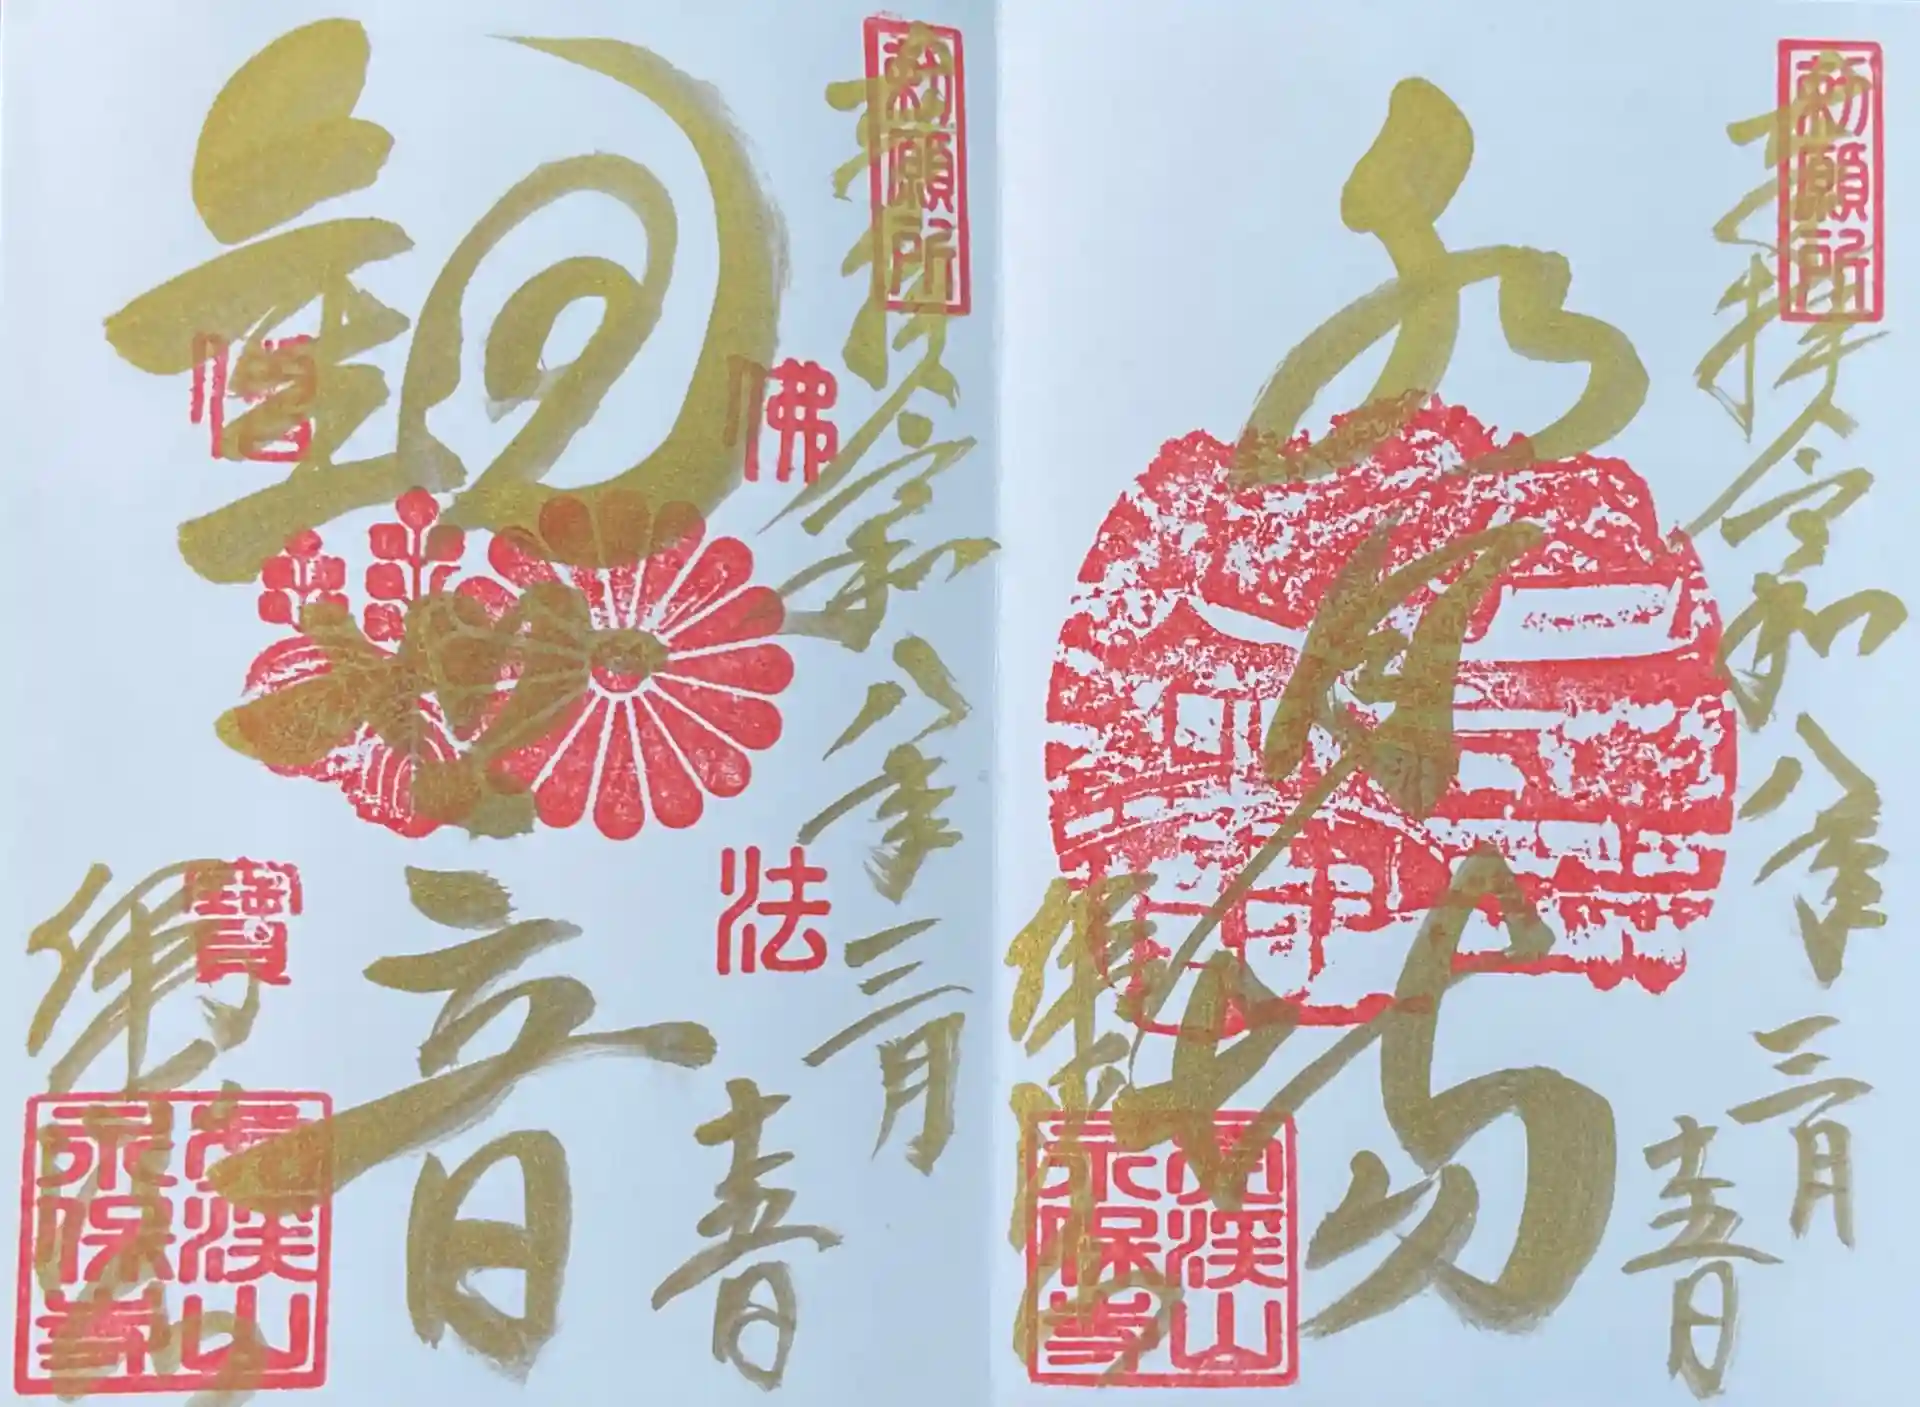 勅願所
奉拝 令和八年三月
十五日
水月場
虎渓山
永保寺
勅願所
奉拝 令和八年三月
十五日
観音
佛
法
僧
寶
虎渓山
永保寺